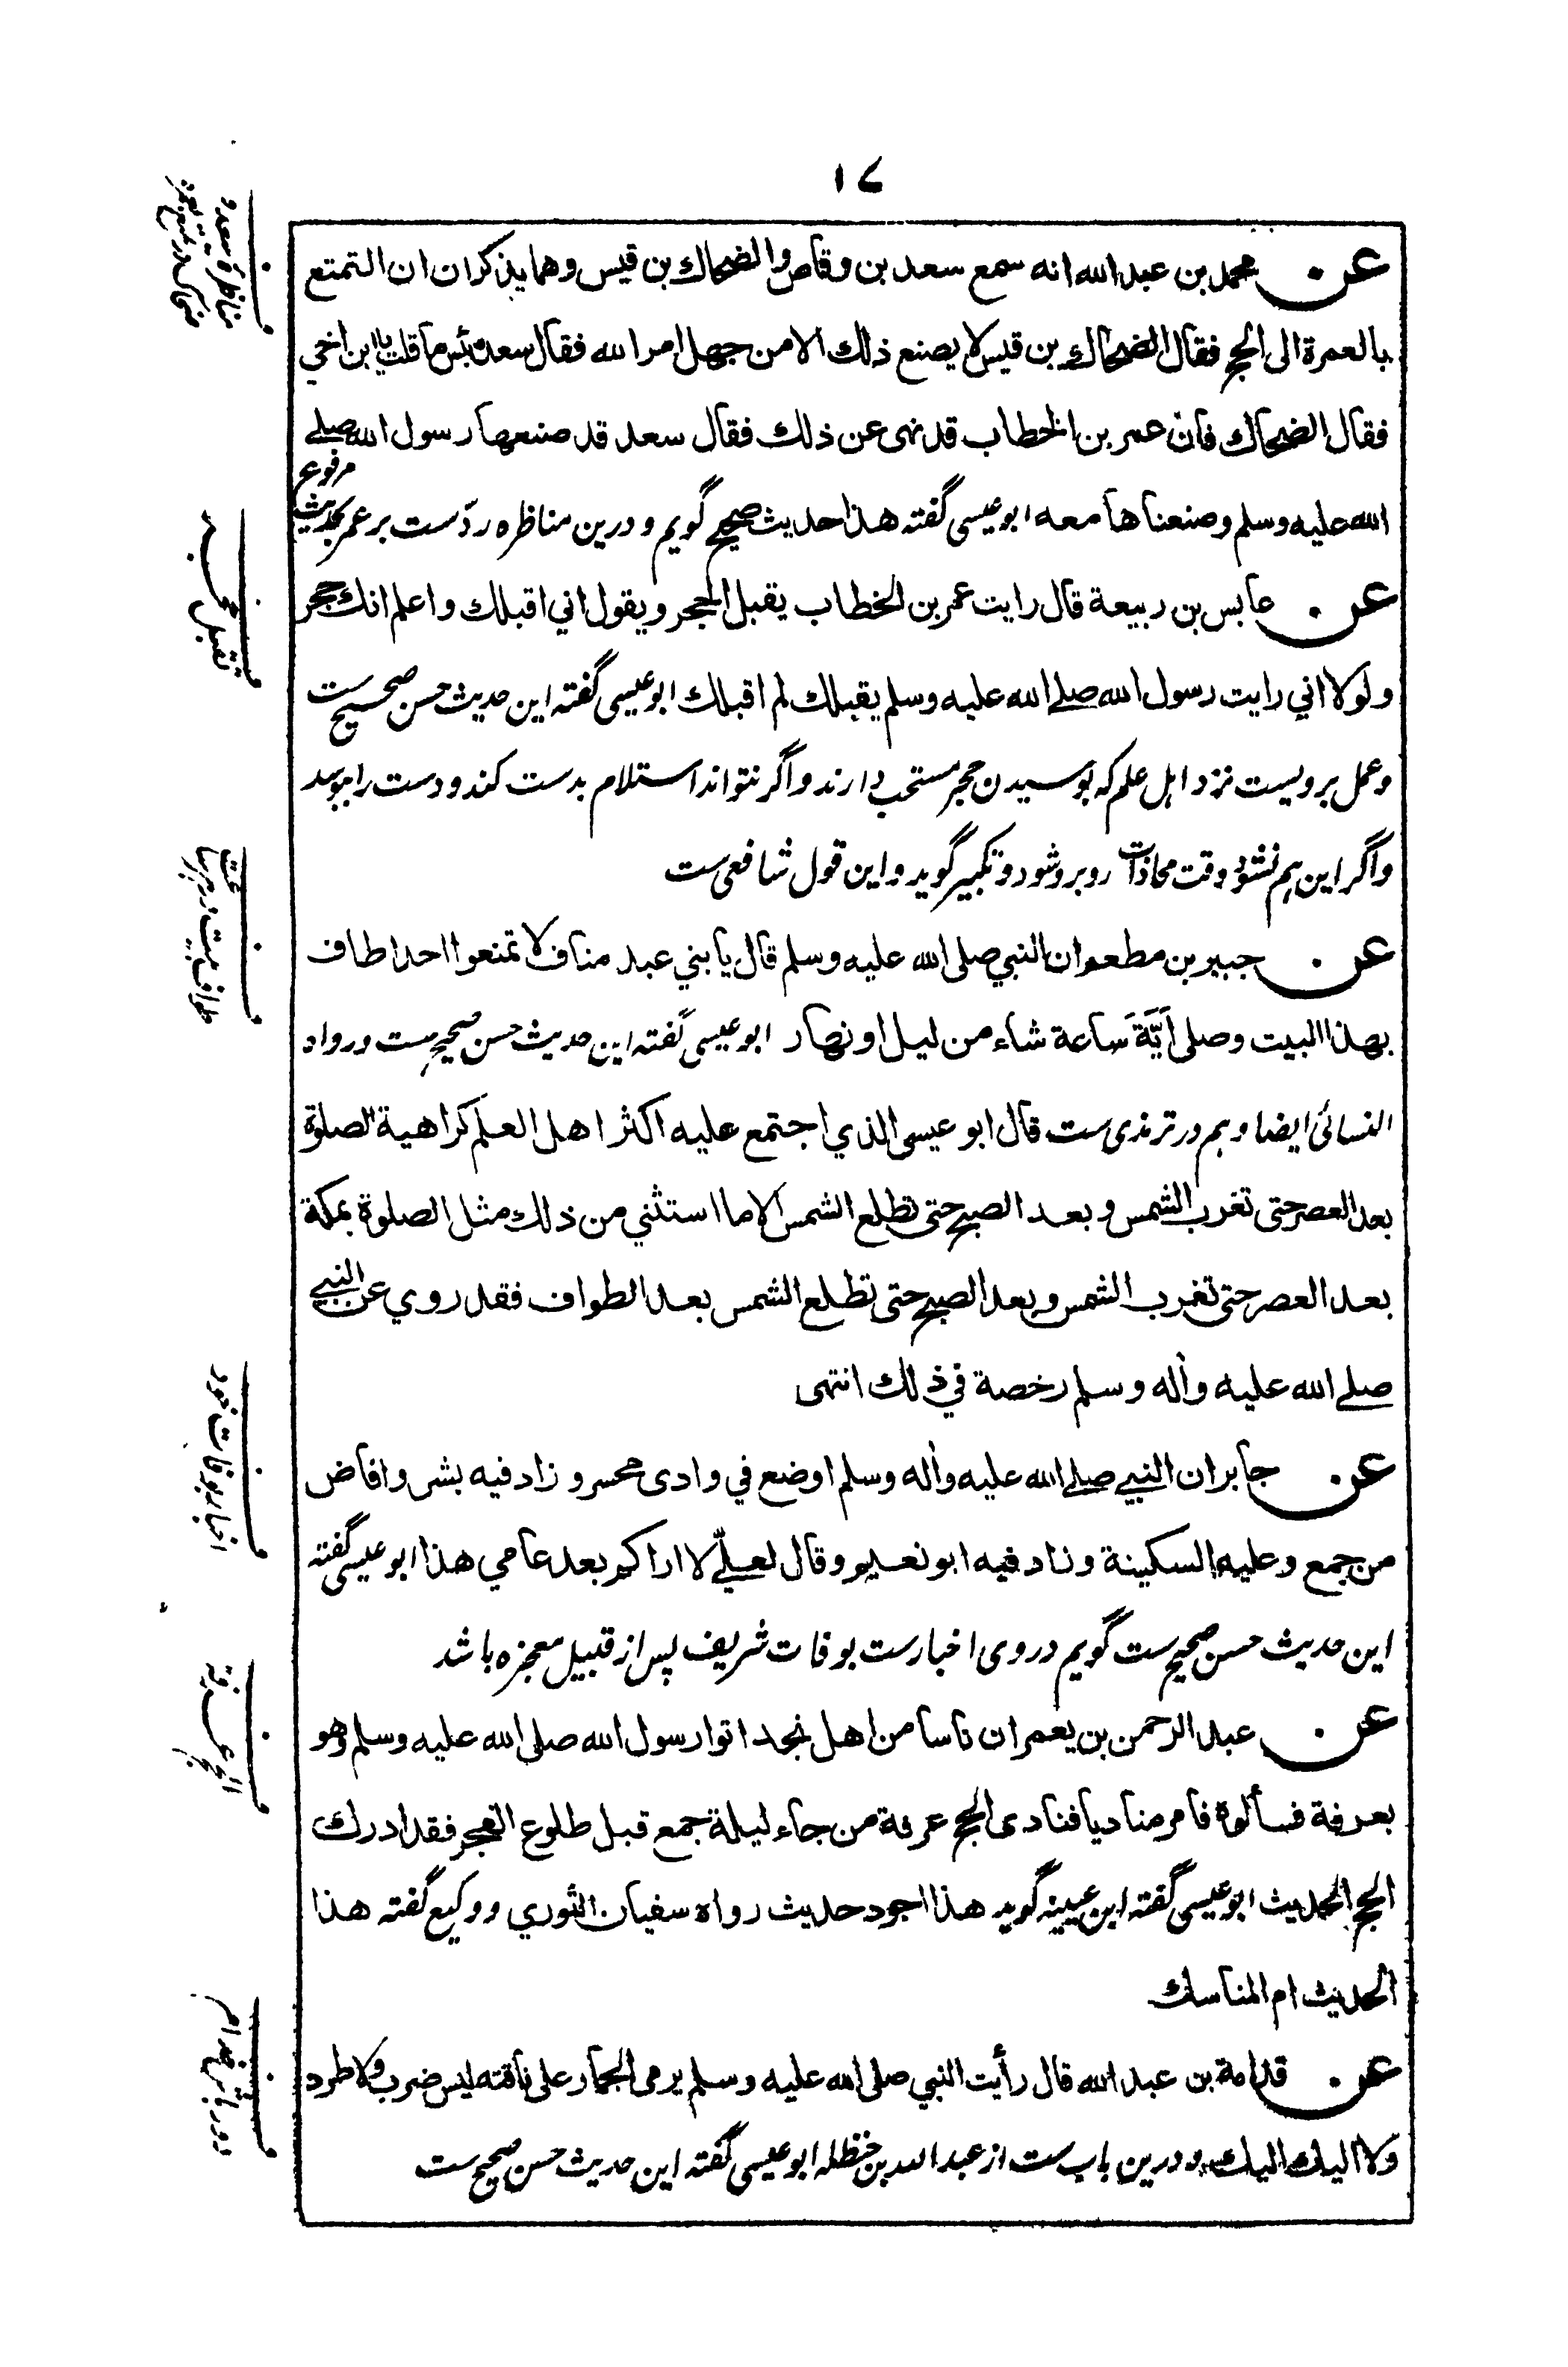 ١٧
عن محمد بن عبد الله انه سمع سعد بن وقاص والضحاك بن قيس وهما يذكران ان التمتع
بالعمرة الى الحج فقال الضحاك بن قيس لا يصنع ذلك الا من جهل امر الله فقال سعد بئس ما قلت يا ابن اخي
فقال الضحاك فان عمر بن الخطاب قد نهى عن ذلك فقال سعد قد صنعها رسول الله صلے
الله عليه وسلم وصنعناها معه ابو عیسی گفته هذا حديث صحيح گویم و درین مناظره ردّست بر عمر بحدیث مرفوع
عن عابس بن ربيعة قال رايت عمر بن الخطاب يقبل الحجر ويقول اني اقبلك واعلم انك حجر
ولولا اني رايت رسول الله صلے الله عليه وسلم يقبلك لم اقبلك ابو عیسی گفته این حدیث حسن صحیح ست
وعمل برویست نزد اہل علم که بوسیدن حجر مستحب دارند و اگر نتواند استلام بدست کند و دست را ببوسد
و اگر این ہم نشود وقت محاذات روبرو شود و تکبیر گوید و این قول شافعی ست
عن جبير بن مطعم ان النبي صلى الله عليه وسلم قال يا بني عبد مناف لا تمنعوا احدا طاف
بهذا البيت وصلى اَيَّةَ ساعة شاء من ليل او نهار ابو عیسی گفته این حدیث حسن صحیح ست و رواه
النسائی ایضا و ہم در ترمذی ست قال ابو عيسى الذي اجتمع عليه اكثر اهل العلم كراهية الصلوة
بعد العصر حتى تغرب الشمس و بعد الصبح حتى تطلع الشمس الا ما استثني من ذلك مثل الصلوة بمكة
بعد العصر حتى تغرب الشمس وبعد الصبح حتى تطلع الشمس بعد الطواف فقد روي عن النبے
صلے الله عليه واٰله وسلم رخصة في ذلك انتهى
عن جابر ان النبے صلے الله عليه واٰله وسلم اوضع في وادى محسر و زاد فيه بشر وافاض
من جمع وعليه السكينة وزاد فيه ابو نعيم وقال لعلّے لا اراكم بعد عامي هذا ابو عیسی گفته
این حدیث حسن صحیح ست گویم در وی اخبارست بوفات شریف پس از قبیل معجزه باشد
عن عبد الرحمن بن يعمر ان ناسا من اهل نجد اتوا رسول الله صلى الله عليه وسلم وهو
بعرفة فسألوه فامر مناديا فنادى الحج عرفة من جاء ليلة جمع قبل طلوع الفجر فقد ادرك
الحج الحديث ابو عیسی گفته ابن عیینه گوید هذا اجود حديث رواه سفيان الثوري و وکیع گفته هذا
الحديث ام المناسك
عن قدامة بن عبد الله قال رأيت النبي صلى الله عليه وسلم يرمى الجمار على ناقته ليس ضرب ولا طرد
ولا اليك اليك و درین باب ست از عبد الله بن حنظله ابو عیسی گفته این حدیث حسن صحیح ست
مناظرۀ سعد و
تقبیل حجر
طواف بیت
اخبار بوفات خود
الحج عرفة